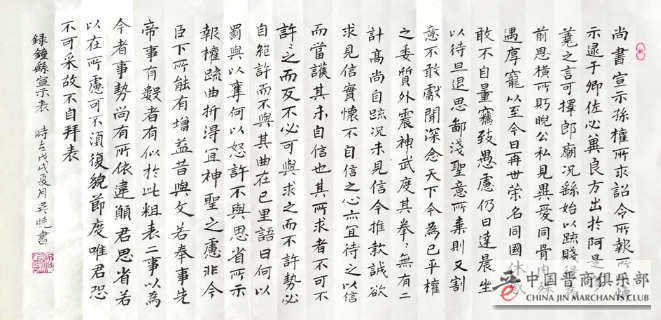 尚書宣示孫權所求詔令所報所
示逮于卿佐必冀良方出於阿是
蕘之言可擇郎廟況繇始以疏賤
前恩橫所眄睨公私見異愛同骨肉殊
遇厚寵以至今日再世榮名同國休戚
敢不自量竊致愚慮仍日達晨坐
以待旦退思鄙淺聖意所棄則又割
意不敢獻聞深念天下今為已平權
之委質外震神武度其拳拳無有二
計高尚自疏況未見信今推款誠欲
求見信實懷不自信之心亦宜待之以信
而當護其未自信也其所求者不可不
許許之而反不必可與求之而不許勢必
自絕許而不與其曲在己里語曰何以
罰與以奪何以怒許不與思省所示
報權疏曲折得宜神聖之慮非今
臣下所能有增益昔與文若奉事先
帝事有數者有似於此粗表二事以為
今者事勢尚有所依違願君思省若
以在所慮可不須復貌節度唯君恐
不可采故不自拜表
錄鍾繇宣示表 時在戊戌夏月吳曉書
中国晋商俱乐部
CHINA JIN MARCHANTS CLUB